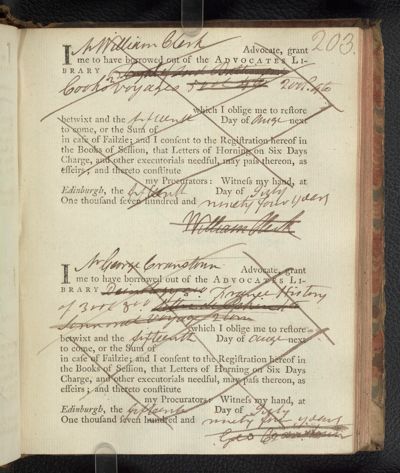 203.
I Mr William Clerk Advocate, grant
me to have borrowed out of the ADVOCATES LI-
BRARY
Cooks Voyages 2 vol. 4to
which I oblige me to restore
betwixt and the fifteenth Day of Augt next
to come, or the Sum of
in case of Failzie; and I consent to the Registration hereof in
the Books of Session, that Letters of Horning on Six Days
Charge, and other executorials needful, may pass thereon, as
effeirs; and thereto constitute
my Procurators: Witness my hand, at
Edinburgh, the fifteenth Day of July
One thousand seven hundred and ninety four years
William Clerk
I Mr George Cranstoun Advocate, grant
me to have borrowed out of the ADVOCATES LI-
BRARY History
of
which I oblige me to restore
betwixt and the fifteenth Day of Augt next
to come, or the Sum of
in case of Failzie; and I consent to the Registration hereof in
the Books of Session, that Letters of Horning on Six Days
Charge, and other executorials needful, may pass thereon, as
effeirs; and thereto constitute
my Procurators: Witness my hand, at
Edinburgh, the fifteenth Day of July
One thousand seven hundred and ninety four years
Geo Cranstoun